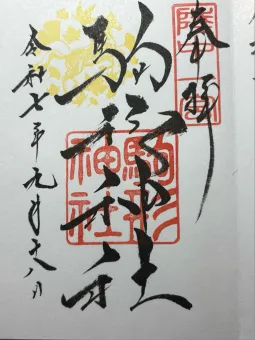 奉拝
陸中一宮
駒形神社
駒形神社
令和七年九月十八日